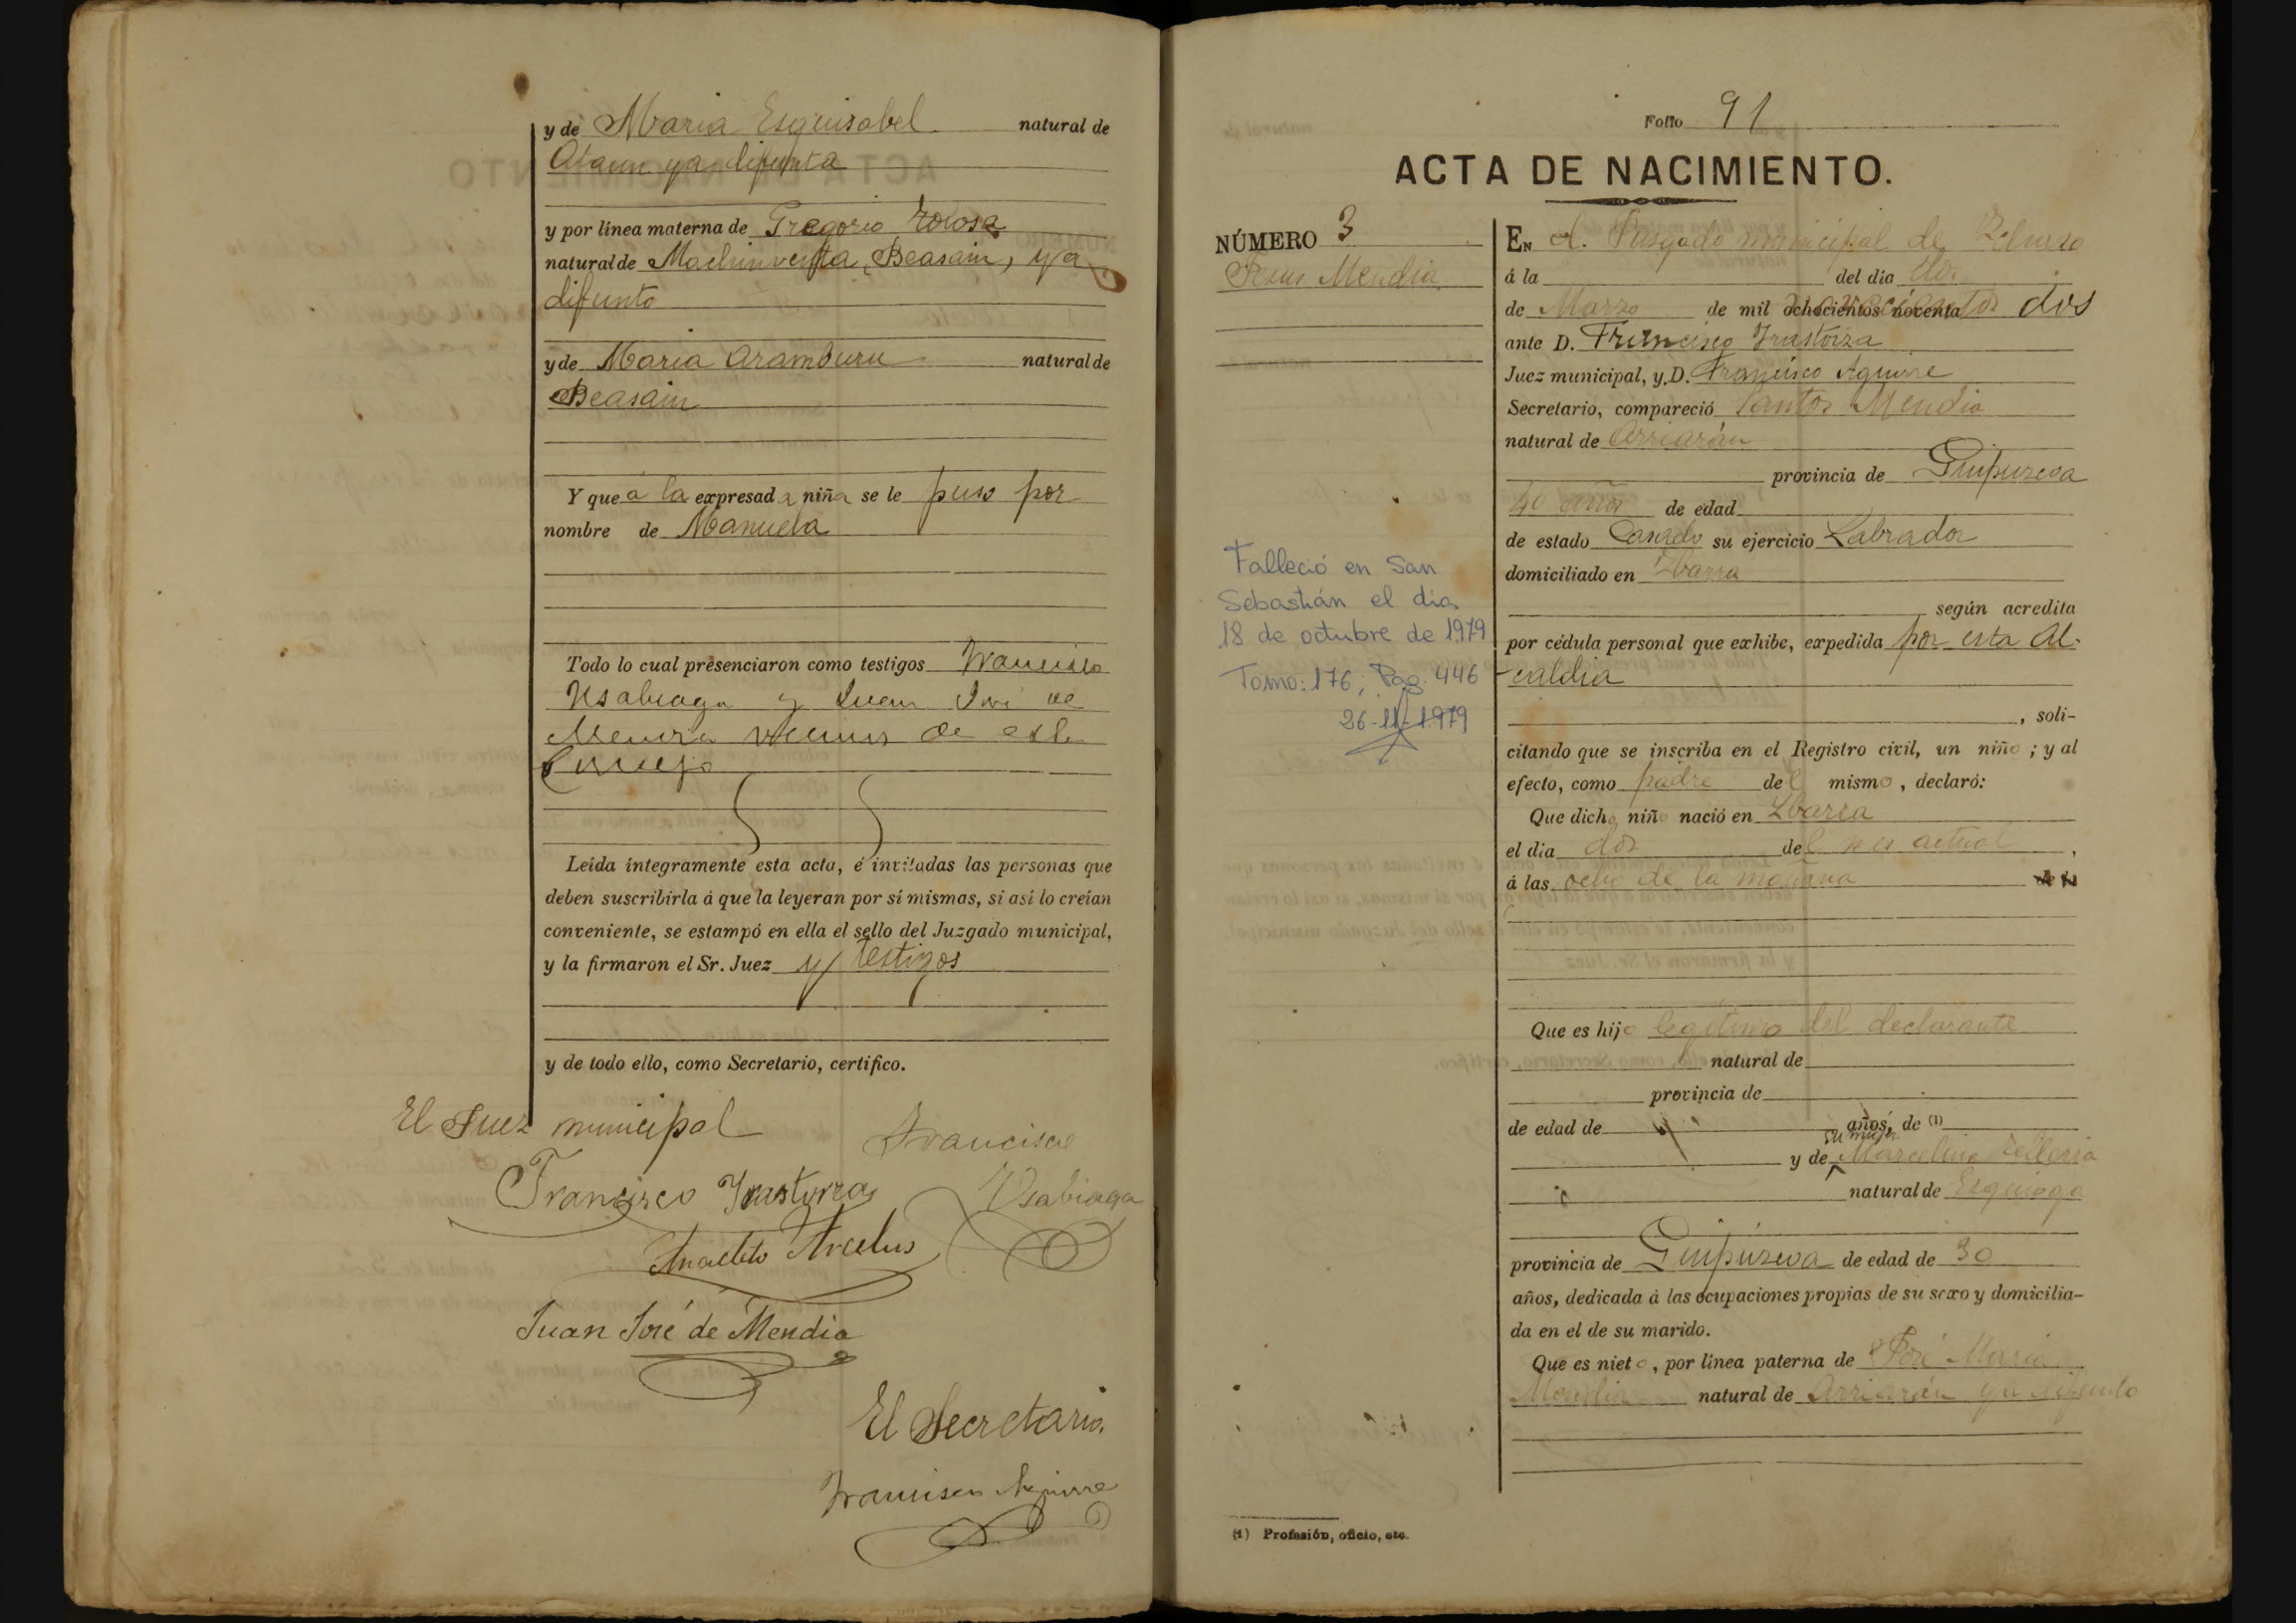 y de Maria Esquisabel natural de
Ataun ya difunta
y por línea materna de Gregorio
natural de Machinventa, Beasain, ya
difunto
y de Maria Aramburu natural de
Beasain
Y que á la expresada niña se le puso por
nombre de Manuela
Todo lo cual presenciaron como testigos Francisco
Usabiaga y Juan José de
Mendia vecinos de este
Concejo
Leída íntegramente esta acta, é invitadas las personas que
deben suscribirla á que la leyeran por sí mismas, si así lo creían
conveniente, se estampó en ella el sello del Juzgado municipal,
y la firmaron el Sr. Juez y testigos
y de todo ello, como Secretario, certifico.
El Juez municipal
Francisco Yrastorza
Francisco
Usabiaga
Anacleto Arcelus
Juan José de Mendia
El Secretario.
Francisco Aguirre
Folio 91
ACTA DE NACIMIENTO.
NÚMERO 3
Jesus Mendia
Falleció en San
Sebastián el día
18 de octubre de 1979
Tomo: 176, Pag. 446
26-11-1979
EN el Juzgado municipal de
á la del dia dos
de Marzo de mil ochocientos noventa dos
ante D. Francisco Yrastorza
Juez municipal, y D. Francisco Aguirre
Secretario, compareció Santos Mendia
natural de Arriarán
provincia de Guipúzcoa
40 años de edad
de estado Casado su ejercicio Labrador
domiciliado en Ybarra
según acredita
por cédula personal que exhibe, expedida por esta Al-
caldia
, soli-
citando que se inscriba en el Registro civil, un niño ; y al
efecto, como padre del mismo , declaró:
Que dicho niño nació en Ybarra
el dia dos del mes actual ,
á las ocho de la mañana
Que es hijo legítimo del declarante
natural de
provincia de
de edad de años, de (1)
y de su mujer Marcelina Telleria
natural de Ezquioga
provincia de Guipúzcoa de edad de 30
años, dedicada á las ocupaciones propias de su sexo y domicilia-
da en el de su marido.
Que es nieto , por línea paterna de José Maria
Mendia natural de Arriarán ya difunto
(1) Profesión, oficio, etc.